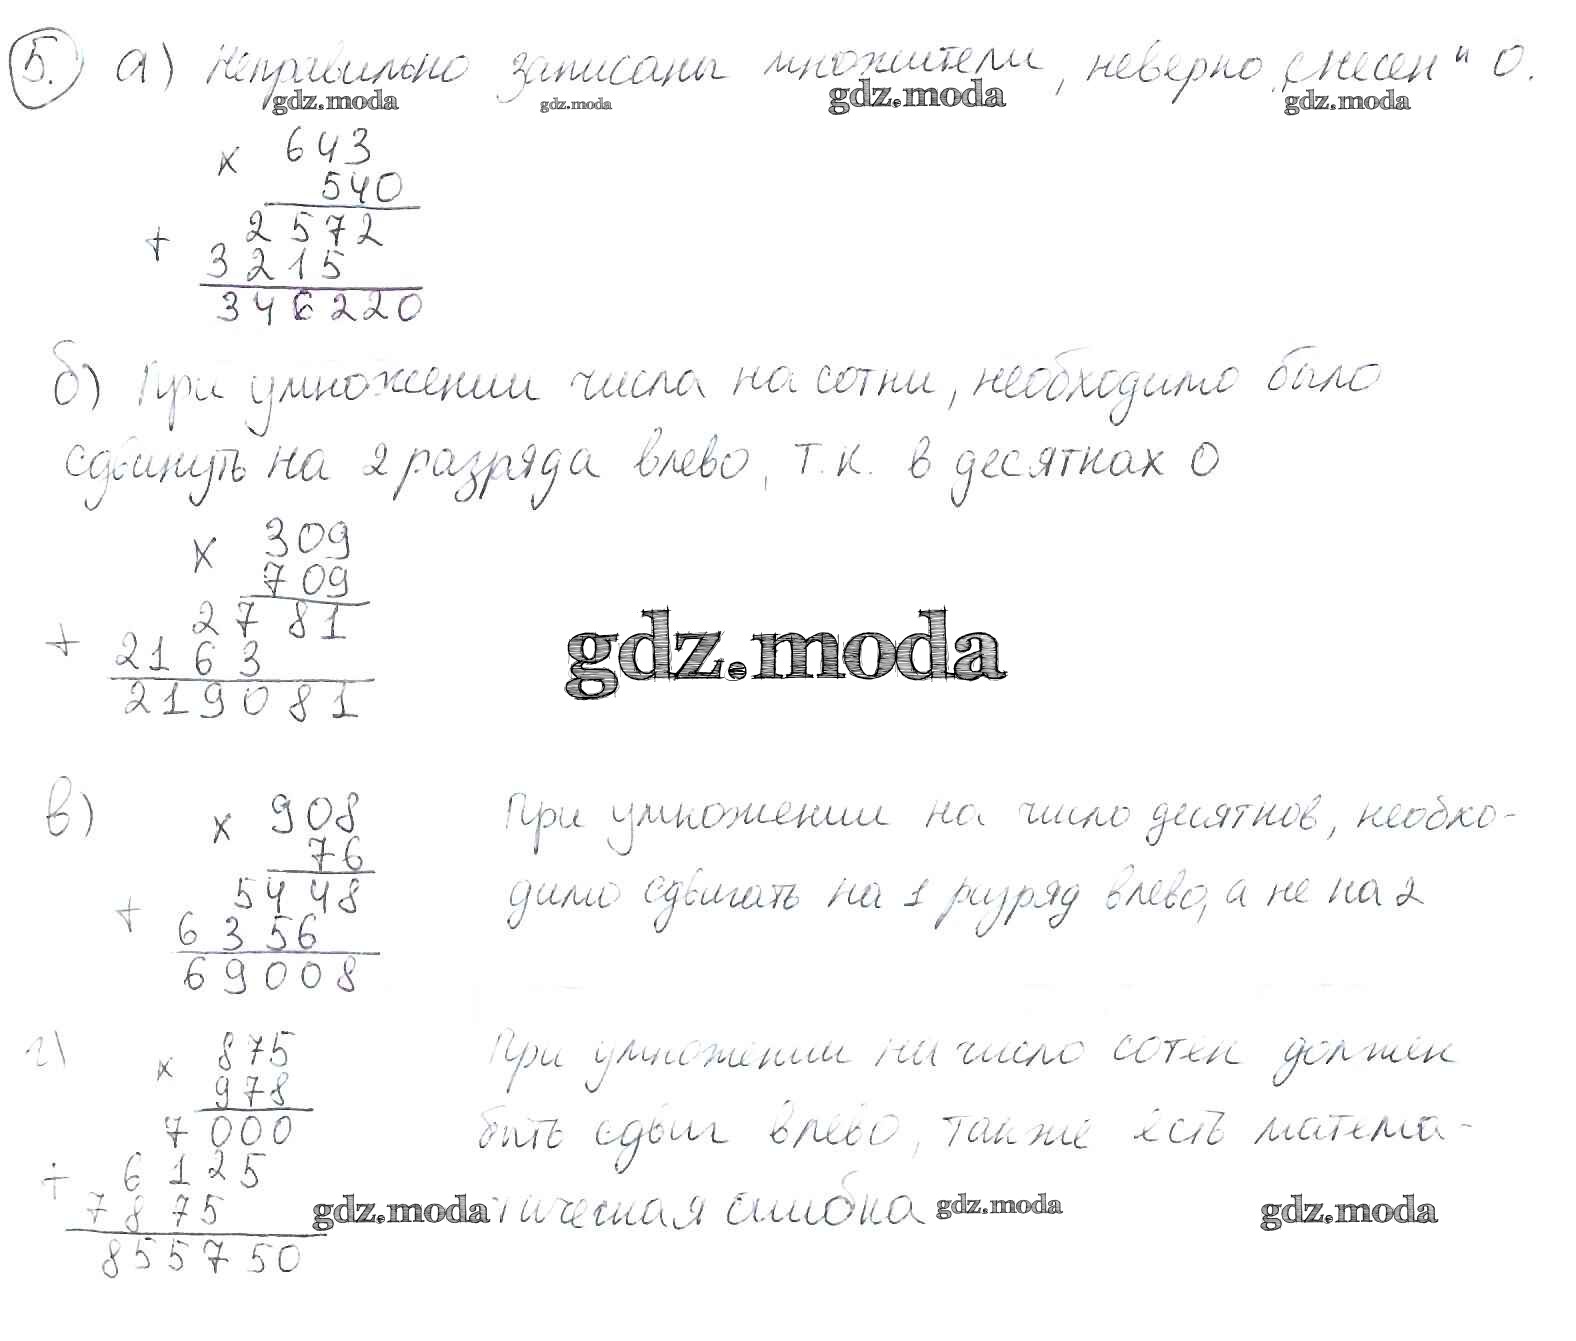 5. а) Неправильно записаны множители, неверно „снесен" 0.
gdz.moda gdz.moda gdz.moda gdz.moda
× 643
540
+ 2572
3215
346220
б) При умножении числа на сотни, необходимо было
сдвинуть на 2 разряда влево, т.к. в десятках 0
× 309
709
+ 2781
2163
219081
gdz.moda
в) × 908
76
+ 5448
6356
69008
При умножении на число десятков, необхо-
димо сдвигать на 1 разряд влево, а не на 2
г) × 875
978
7000
+ 6125
7875
855750
При умножении на число сотен должен
быть сдвиг влево, также есть матема-
тическая ошибка
gdz.moda gdz.moda gdz.moda